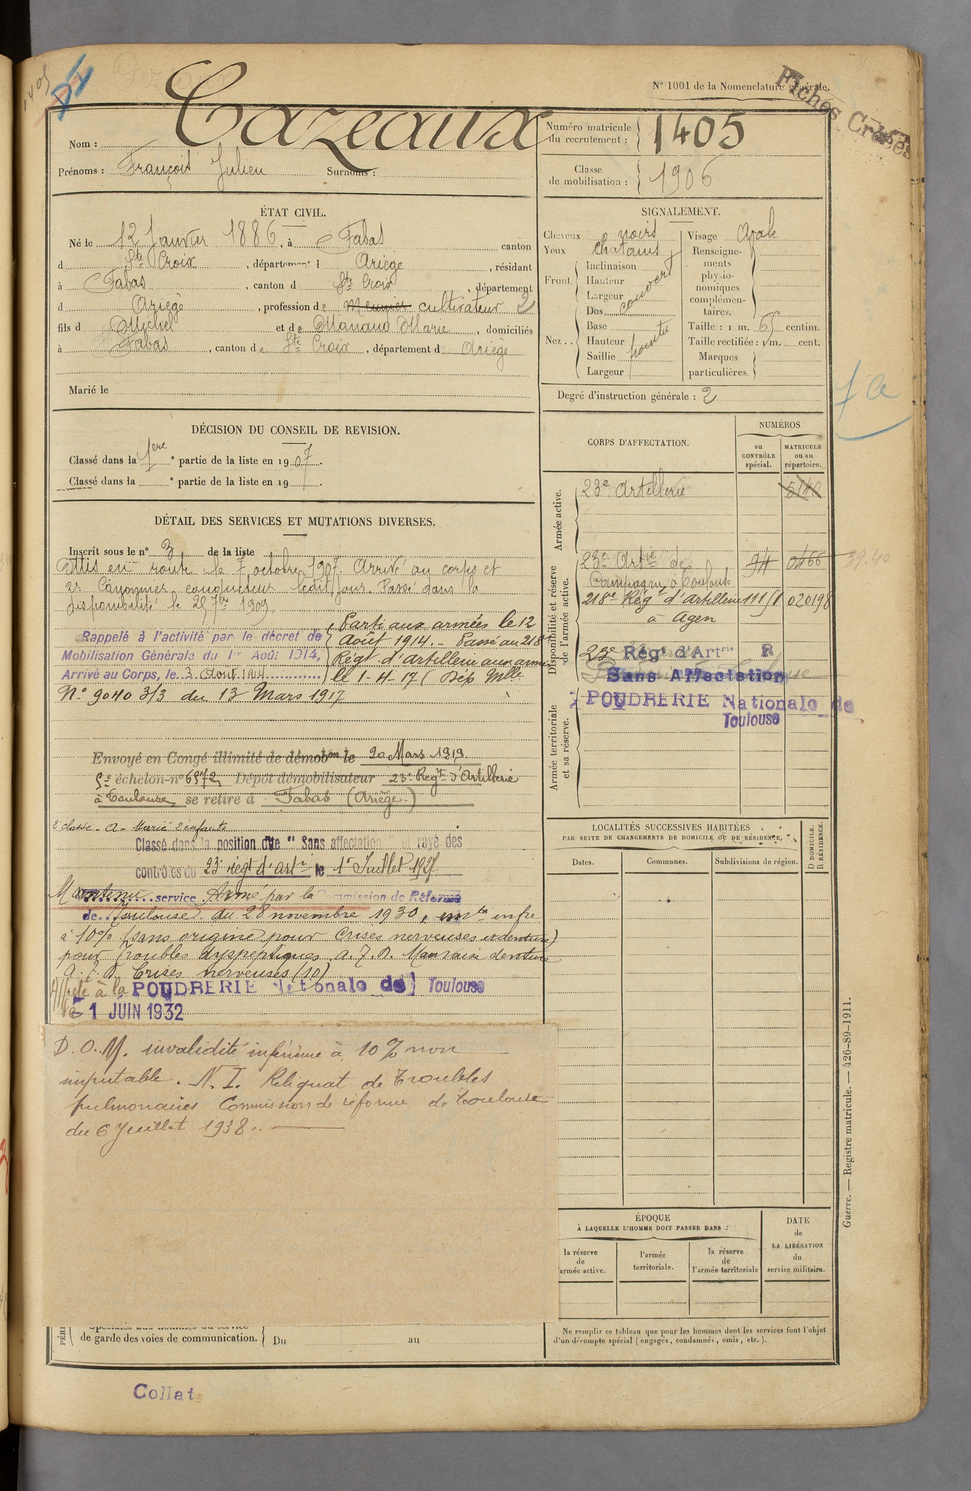 N° 1001 de la Nomenclature générale.
Fiches Créées
Nom : Cazeaux
Prénoms : François Julien Surnoms :
Numéro matricule du recrutement : 1405
Classe de mobilisation : 1906
ÉTAT CIVIL.
Né le 12 Janvier 1886, à Fabas canton
d Ste Croix, département d Ariège, résidant
à Fabas, canton d Ste Croix, département
d Ariège, profession de Meunier cultivateur 2
fils d Michel et de Manaud Marie, domiciliés
à Fabas, canton de Ste Croix, département d Ariège
Marié le
SIGNALEMENT.
Cheveux noirs
Yeux chatains
Front. Inclinaison Hauteur Largeur couvert
Nez .. Dos Base Hauteur Saillie Largeur pointu
Visage Ovale
Renseignements physionomiques complémentaires.
Taille : 1 m. 65 centim.
Taille rectifiée : 1 m. cent.
Marques particulières.
Degré d'instruction générale : 2
DÉCISION DU CONSEIL DE REVISION.
Classé dans la 1ere partie de la liste en 1907.
Classé dans la ° partie de la liste en 19 .
CORPS D'AFFECTATION.
NUMÉROS
au CONTRÔLE spécial.
MATRICULE ou au répertoire.
Armée active.
23e Artillerie
Disponibilité et réserve de l'armée active.
23e Artie de
Campagne à Toulouse
218e Régt d'Artillerie 111/1 020198
à Agen
23e Régt d'Artrie R
Sans Affectation
POUDRERIE Nationale de
Toulouse
Armée territoriale et sa réserve.
DÉTAIL DES SERVICES ET MUTATIONS DIVERSES.
Inscrit sous le n° 3 de la liste
Mis en route le 7 octobre 1907. Arrivé au corps et
2e Canonnier conducteur ledit jour. Passé dans la
disponibilité le 25 7bre 1909.
Rappelé à l'activité par le décret de
Mobilisation Générale du 1er Août 1914,
Arrivé au Corps, le 3 Août 1914
Parti aux armées le 12
Août 1914. Passé au 218e
Régt d'Artillerie aux armées
le 1-4-17 (Dép Mlle
N° 9040 3/3 du 13 Mars 1917
Envoyé en Congé illimité de démobon le 20 Mars 1919.
5e échelon n° 6972 Dépôt démobilisateur 23e Régt d'Artillerie
à Toulouse se retire à Fabas (Ariège.)
2 classe - A - Marié 2 enfants
Classé dans la position dite " Sans affectation " rayé des
contrôles du 23 régt d'art le 1er Juillet
Maintenu service Armé par la Commission de Réforme
de Toulouse du 28 novembre 1930, inv.té infre
à 10% (sans origine pour Crises nerveuses
pour Troubles dyspeptiques a. J. O. Mauvaise denture
Crises nerveuses (10)
Affecté à la POUDRERIE Nationale de Toulouse
Le 1 JUIN 1932
D. O. M. invalidité inférieure à 10 % non
imputable. N. I. Reliquat de Troubles
pulmonaires Commission de réforme de Toulouse
du 6 Juillet 1938.
LOCALITÉS SUCCESSIVES HABITÉES
PAR SUITE DE CHANGEMENTS DE DOMICILE OU DE RÉSIDENCE.
Dates.
Communes.
Subdivisions de région.
D DOMICILE. R RÉSIDENCE.
ÉPOQUE
À LAQUELLE L'HOMME DOIT PASSER DANS :
la réserve de l'armée active.
l'armée territoriale.
la réserve de l'armée territoriale
DATE de LA LIBÉRATION du service militaire.
de garde des voies de communication. Du au
Ne remplir ce tableau que pour les hommes dont les services font l'objet
d'un décompte spécial (engagés, condamnés, omis, etc.).
Guerre. — Registre matricule. — 426-89-1911.
Collat